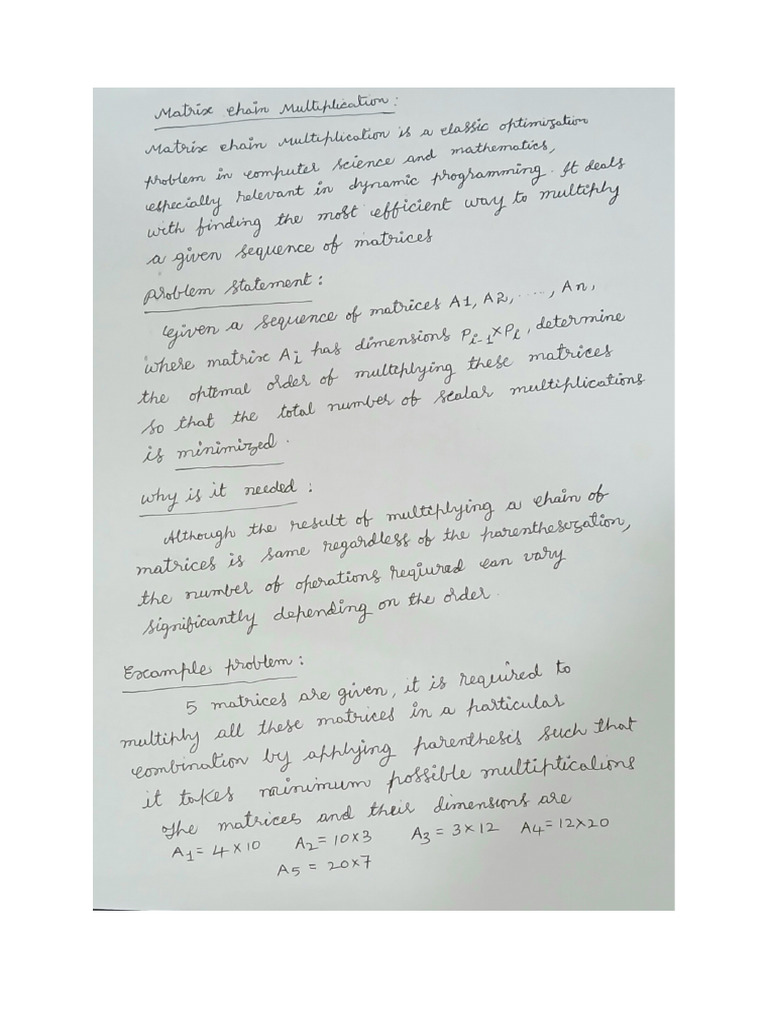 Matrix chain Multiplication:
Matrix chain Multiplication is a classic optimization
problem in computer science and mathematics,
especially relevant in dynamic programming. It deals
with finding the most efficient way to multiply
a given sequence of matrices
Problem Statement:
Given a sequence of matrices A1, A2, ....., An,
where matrix Ai has dimensions Pi-1×Pi, determine
the optimal order of multiplying these matrices
so that the total number of scalar multiplications
is minimized.
Why is it needed:
Although the result of multiplying a chain of
matrices is same regardless of the parenthesization,
the number of operations required can vary
significantly depending on the order.
Example problem:
5 matrices are given, it is required to
multiply all these matrices in a particular
combination by applying parenthesis such that
it takes minimum possible multiplications
The matrices and their dimensions are
A1 = 4×10 A2 = 10×3 A3 = 3×12 A4 = 12×20
A5 = 20×7